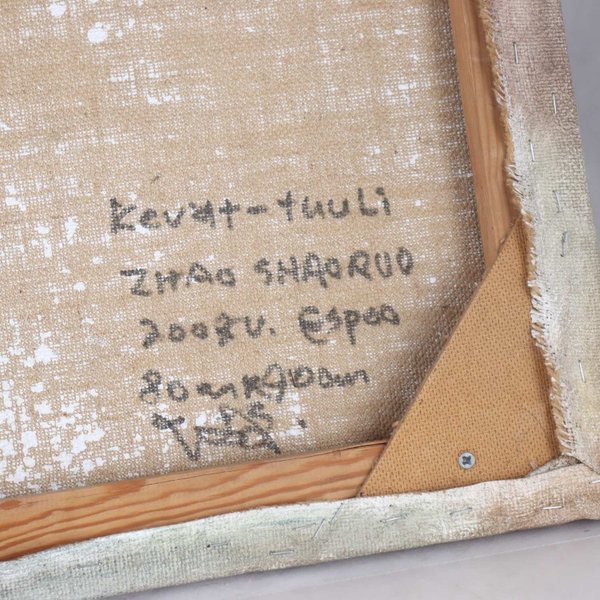 Kevät-tuuli
ZHAO SHAORUO
2008 V. Espoo
80cmx90cm